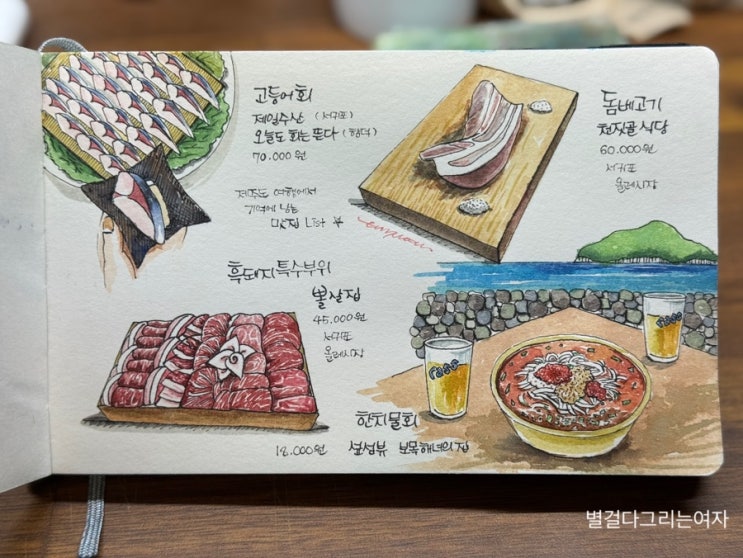 고등어회
제일수산 (서귀포)
오늘도 회는 뜬다 (함덕)
70.000원
제주도 여행에서
기억에 남는
맛집 List
돔베고기
천짓골식당
60.000원
서귀포
올레시장
흑돼지 특수부위
뽈살집
45.000원
서귀포
올레시장
한치물회
18.000원 섶섬뷰 보목해녀의집
cass
cass
별걸다그리는여자